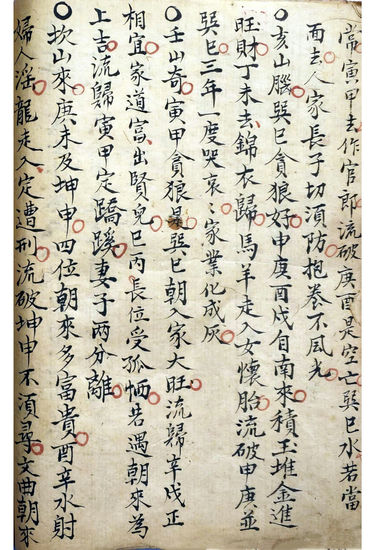 當寅甲去作官郎流破庚酉是空亡巽巳水若當
而去人家長子切須防抱卷不風光
亥山腦巽巳貪狼好申庚酉戌自南來積玉堆金進
旺財丁未去錦衣歸馬羊走入女懷胎流破申庚並
巽巳三年一度哭哀々家業化成灰
壬山奇寅甲貪狼是巽巳朝入家大旺流歸辛戌正
相宜家道富出賢兒巳丙長位受孤恓若遇朝來為
上吉流歸寅甲定蹺蹊妻子兩分離
坎山來庚未及坤申四位朝來多富貴酉辛水射
婦人淫龍走入定遭刑流破坤申不須尋文曲朝來